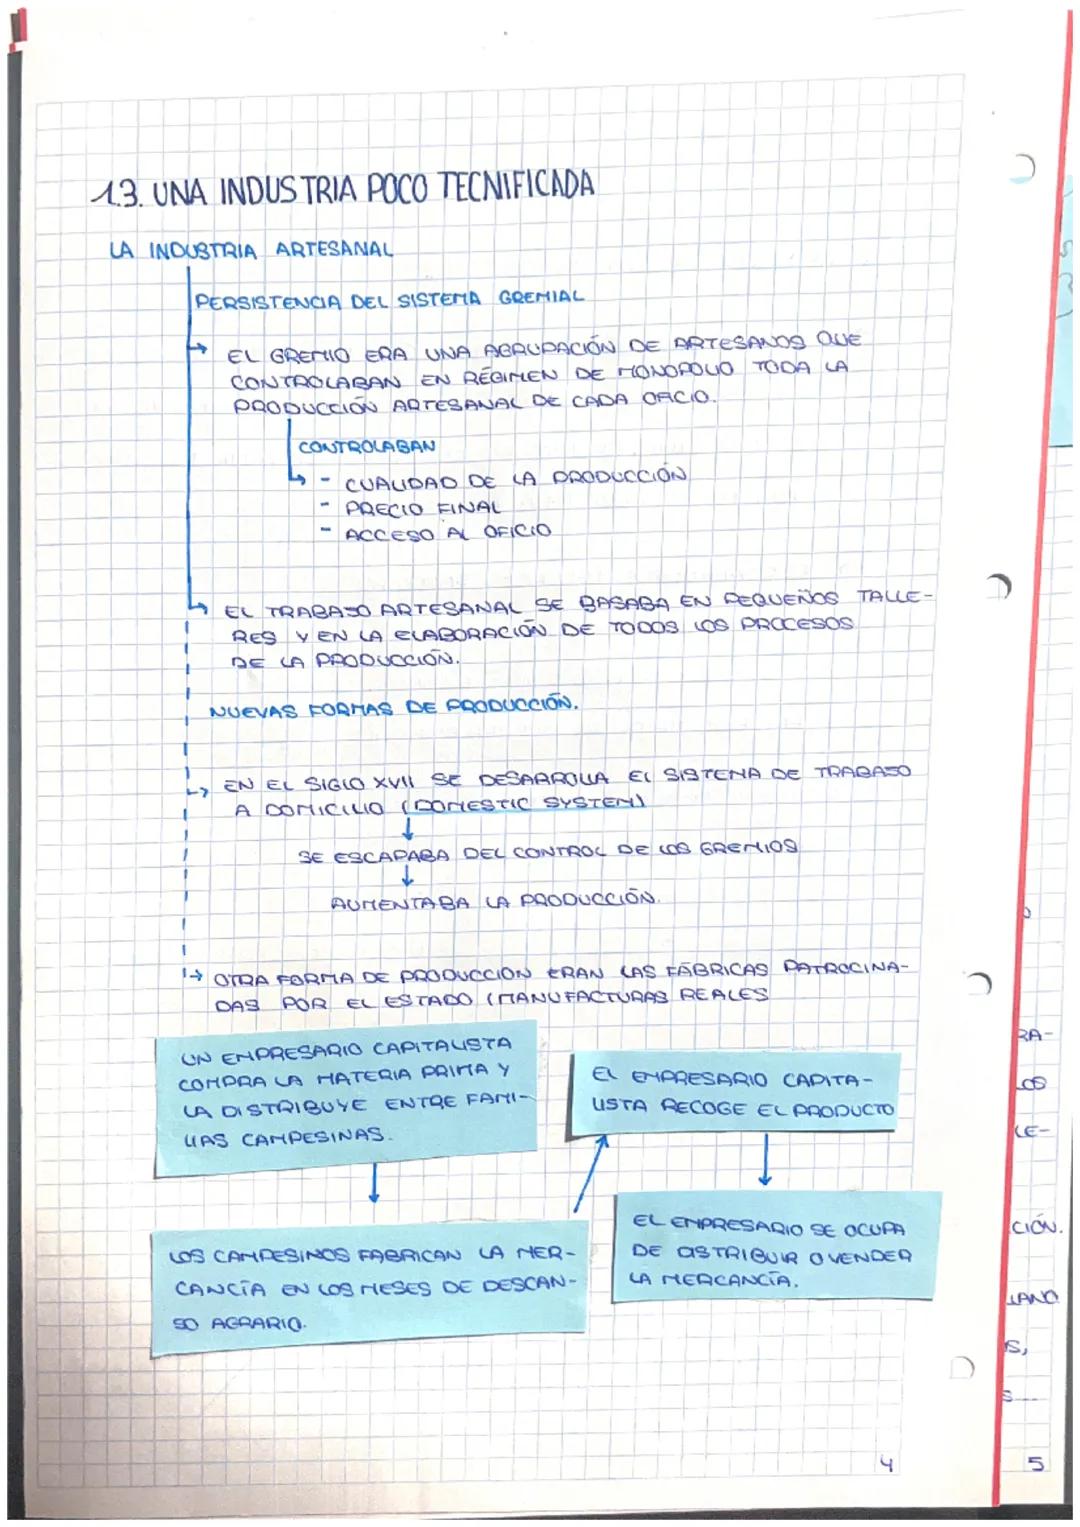 1.3. UNA INDUSTRIA POCO TECNIFICADA
LA INDUSTRIA ARTESANAL
PERSISTENCIA DEL SISTEMA GREMIAL
→ EL GREMIO ERA UNA AGRUPACIÓN DE ARTESANOS QUE
CONTROLABAN EN RÉGIMEN DE MONOPOLIO TODA LA
PRODUCCIÓN ARTESANAL DE CADA OFICIO.
CONTROLABAN
→ - CUALIDAD DE LA PRODUCCIÓN
- PRECIO FINAL
- ACCESO AL OFICIO
→ EL TRABAJO ARTESANAL SE BASABA EN PEQUEÑOS TALLE-
RES Y EN LA ELABORACIÓN DE TODOS LOS PROCESOS
DE LA PRODUCCIÓN.
NUEVAS FORMAS DE PRODUCCIÓN.
→ EN EL SIGLO XVII SE DESARROLLA EL SISTEMA DE TRABAJO
A DOMICILIO (DOMESTIC SYSTEM)
↓
SE ESCAPABA DEL CONTROL DE LOS GREMIOS
↓
AUMENTABA LA PRODUCCIÓN.
→ OTRA FORMA DE PRODUCCIÓN ERAN LAS FÁBRICAS PATROCINA-
DAS POR EL ESTADO (MANUFACTURAS REALES
UN EMPRESARIO CAPITALISTA
COMPRA LA MATERIA PRIMA Y
LA DISTRIBUYE ENTRE FAMI-
LIAS CAMPESINAS.
LOS CAMPESINOS FABRICAN LA MER-
CANCÍA EN LOS MESES DE DESCAN-
SO AGRARIO.
EL EMPRESARIO CAPITA-
LISTA RECOGE EL PRODUCTO
EL EMPRESARIO SE OCUPA
DE DISTRIBUIR O VENDER
LA MERCANCÍA.
4
RA-
LOS
LE-
CIÓN.
S,
5